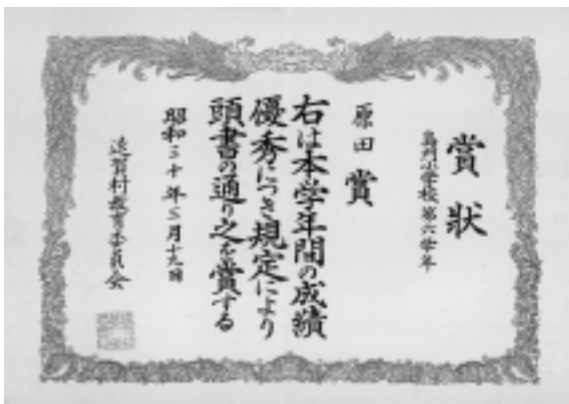 賞狀
島門小学校第六学年
原田賞
右は本学年間の成績
優秀につき規定により
頭書の通り之を賞する
昭和三十年三月十九日
遠賀村教育委員会